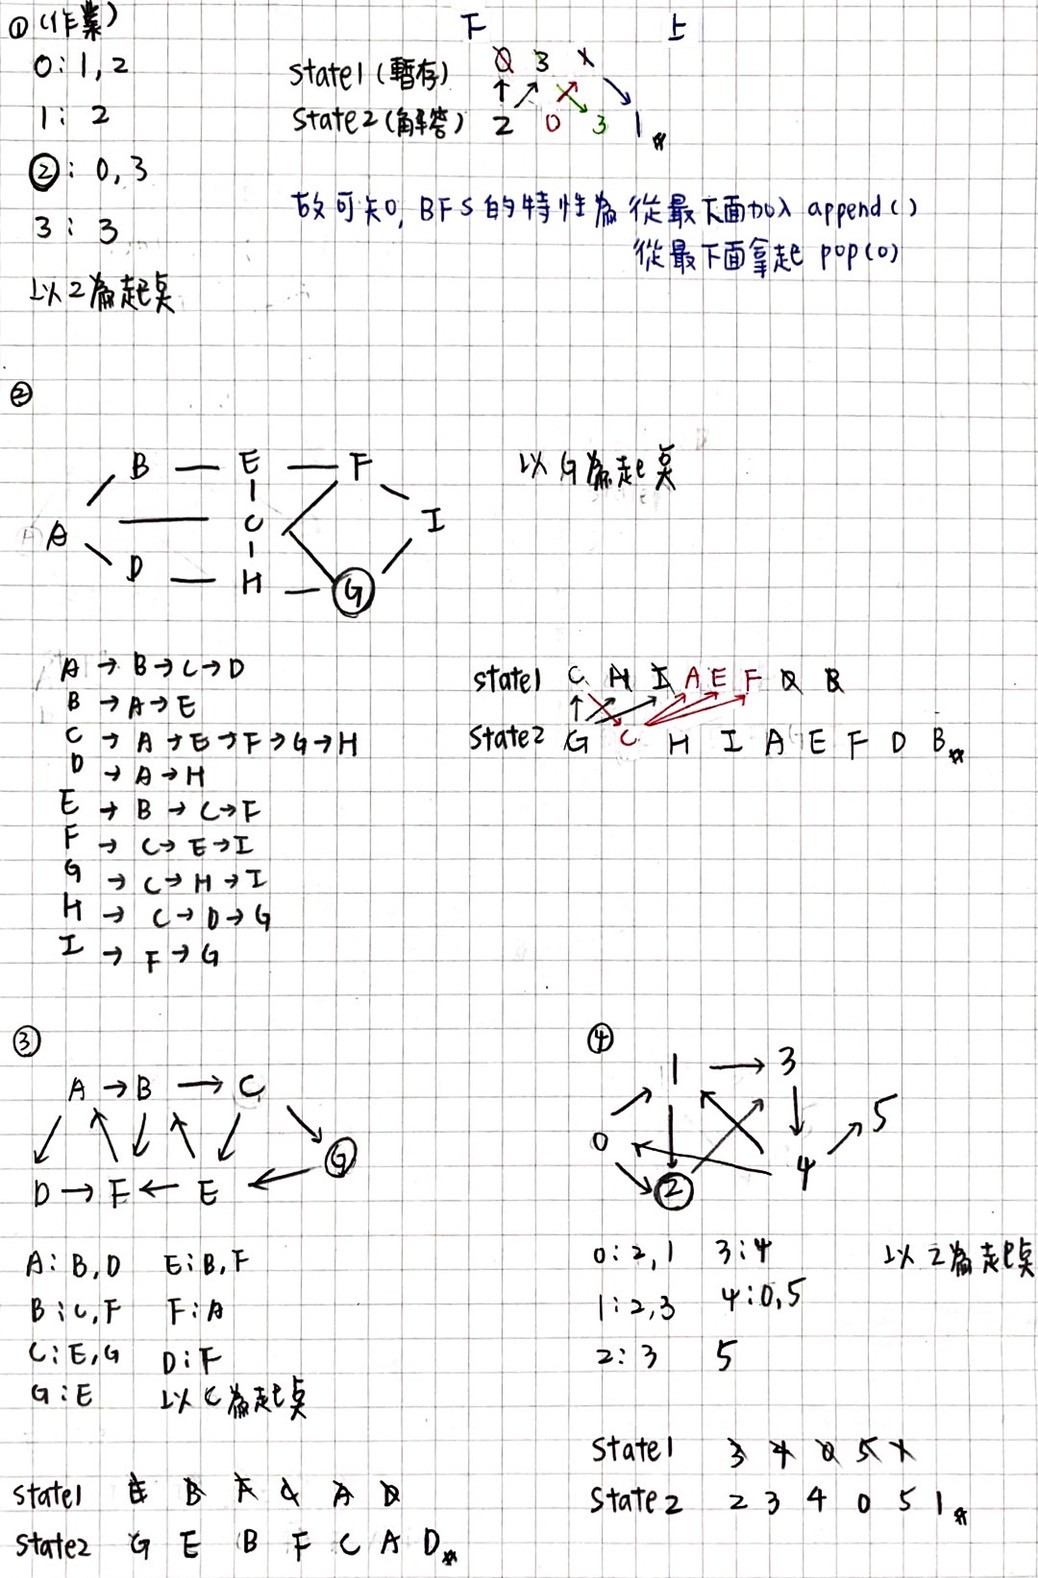 ① (作業)
0: 1, 2
1: 2
②: 0, 3
3: 3
以2為起點
下 上
state1 (暫存) 0 3 1
state2 (解答) 2 0 3 1
故可知, BFS的特性為 從最下面加入 append()
從最下面拿起 pop(0)
②
B E F
A C I
D H G
以G為起點
A → B → C → D
B → A → E
C → A → E → F → G → H
D → A → H
E → B → C → F
F → C → E → I
G → C → H → I
H → C → D → G
I → F → G
state1 C H I A E F D B
state2 G C H I A E F D B
③
A → B → C
G
D → F ← E
A: B, D E: B, F
B: C, F F: A
C: E, G D: F
G: E 以C為起點
state1 E B F C A D
state2 G E B F C A D
④
1 → 3
5
0
4
②
0: 2, 1 3: 4
1: 2, 3 4: 0, 5
2: 3 5
以2為起點
state1 3 4 0 5 1
state2 2 3 4 0 5 1